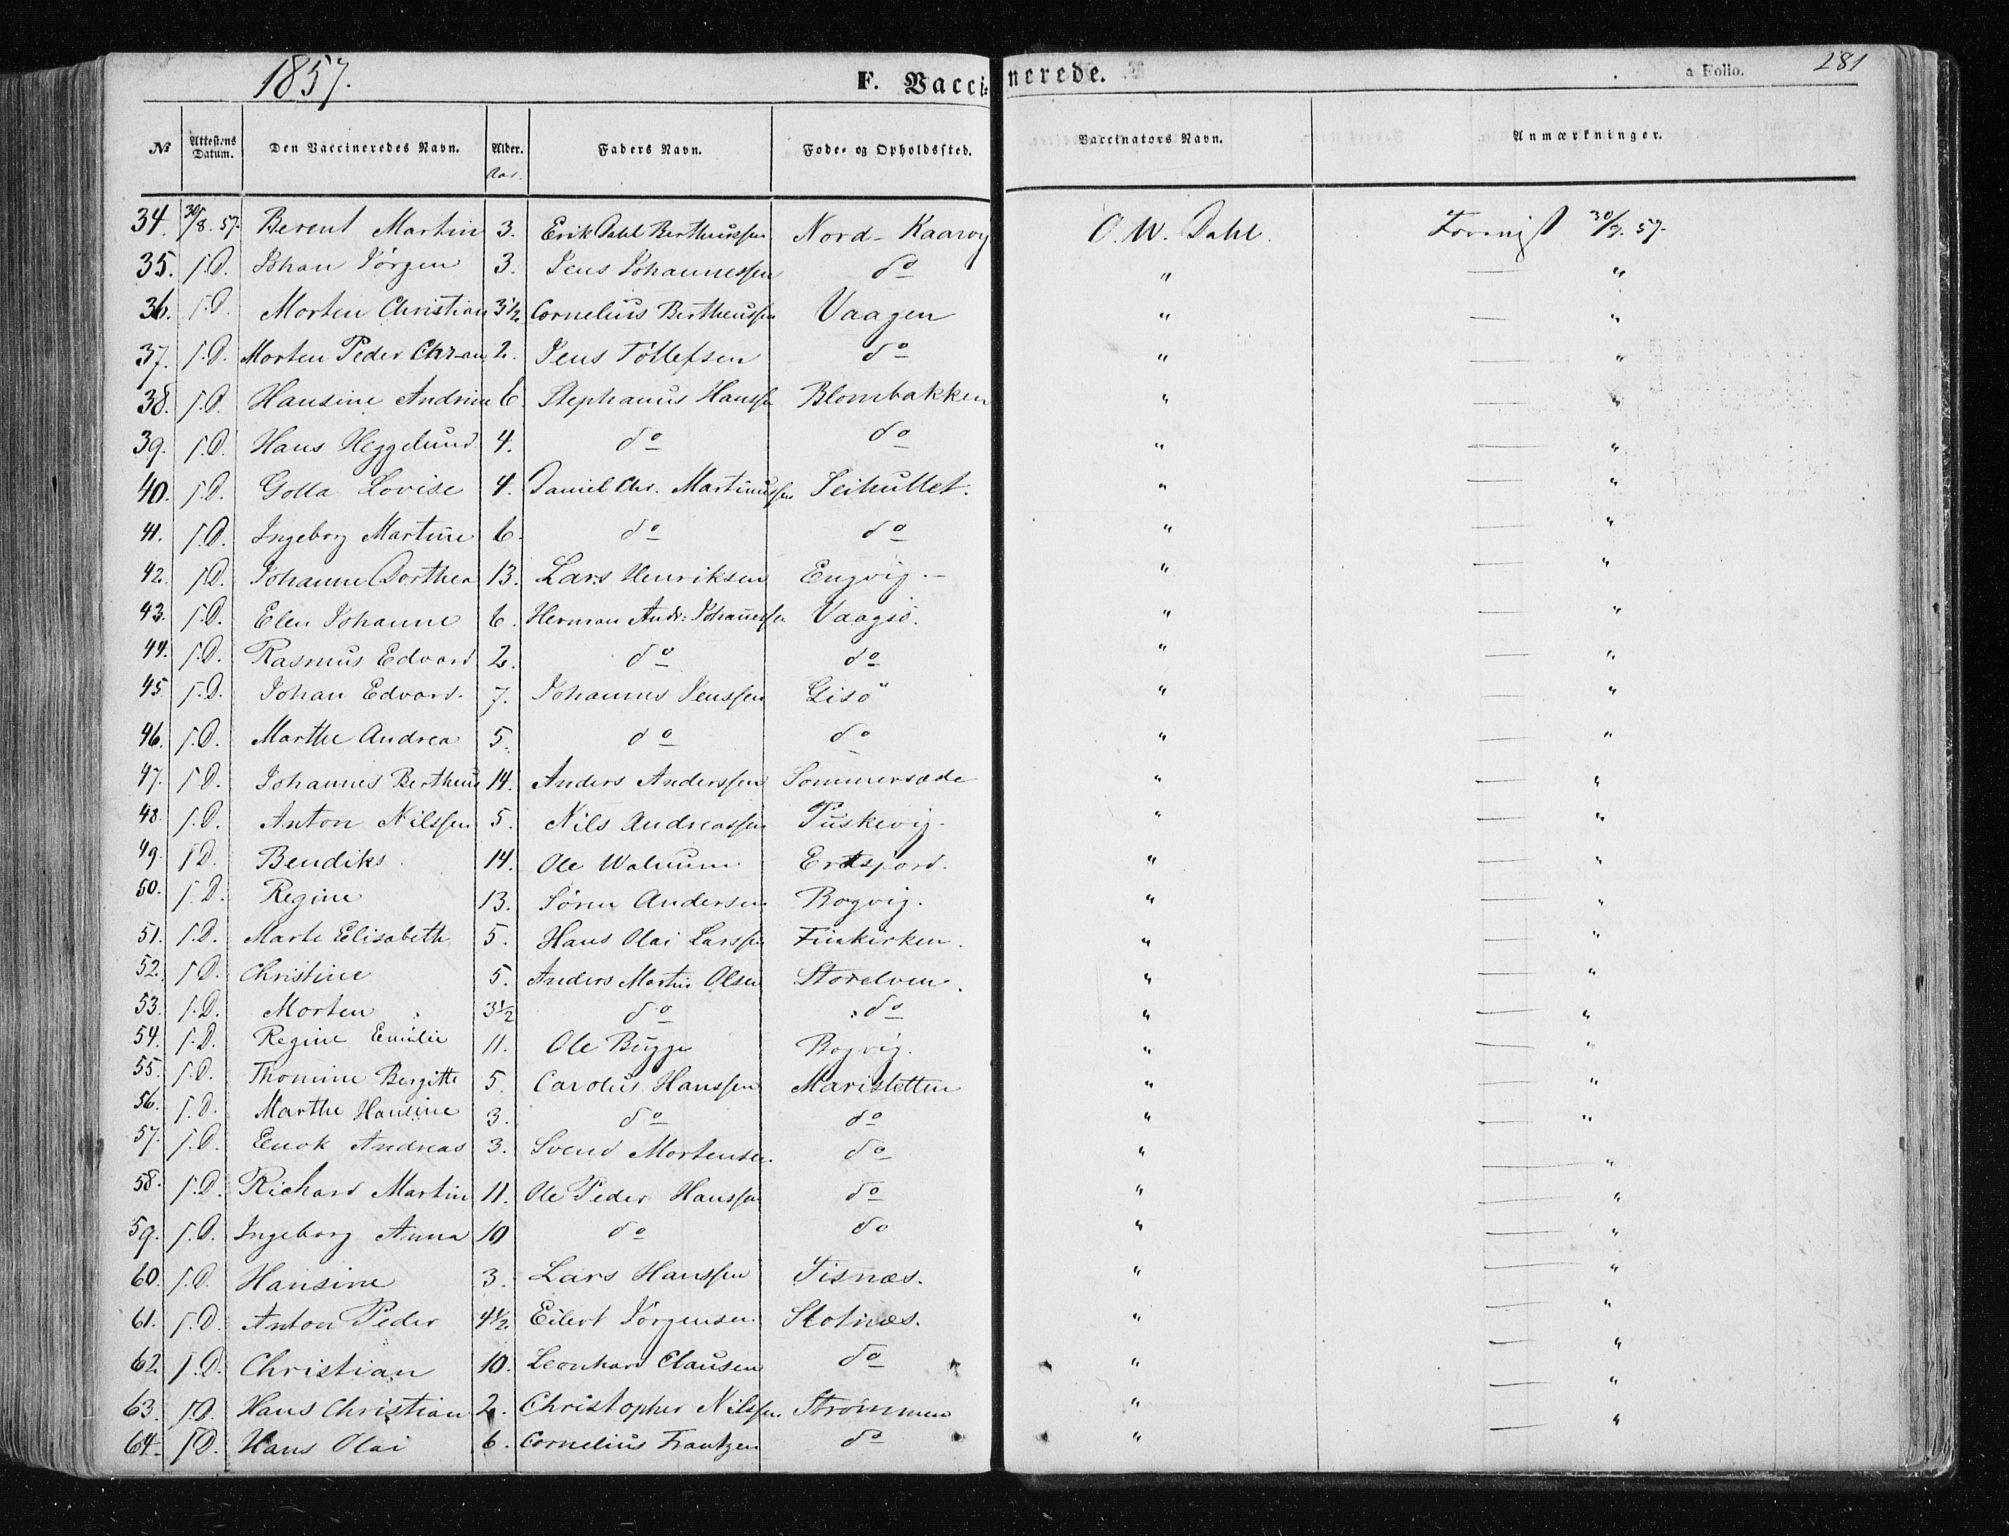 1857.
F. Vaccinerede.
a Folio. 281
№ Attestens Datum. Den Vaccineredes Navn. Alder. Faders Navn. Føde- og Opholdssted. Vaccinators Navn. Anmærkninger.
Aar.
34. 30/8. 57. Berent Martin 3. Erik Dahl Bertheussen Nord-Kaarvg O. W. Dahl. 30/7. 57.
35. s.D. Johan Jørgen 3. Jens Johannessen do " — "
36. s.D. Morten Christian 3½ Cornelius Bertheussen Vaagen " — "
37. s.D. Morten Peder Chr-an 2. Jens Tollefsen do " — "
38. s.D. Hansine Andrine 6. Stephanus Hanssen Blombakken " — "
39. s.D. Hans Heggelund 4. do do " — "
40. s.D. Golla Lovise 4. Daniel Chr. Martinussen Seihullet. " — "
41. s.D. Ingeborg Martine 6. do do " — "
42. s.D. Johanne Dorthea 13. Lars Henriksen Engvig. " — "
43. s.D. Elen Johanne 6. Herman Andr: Johannessen Vaagsø. " — "
44. s.D. Rasmus Edvard 2. do do " — "
45. s.D. Johan Edvard. 7. Johannes Jenssen Gisö " — "
46. s.D. Marthe Andrea 5. do do " — "
47. s.D. Johannes Bertheus 14. Anders Anderssen Sommersæde " — "
48. s.D. Anton Nilssen 5. Nils Andreassen Tuskevig. " — "
49. s.D. Bendiks. 14. Ole Walnum. Ertsfjord. " — "
50. s.D. Regine 13. Søren Andersen Bogvig. " — "
51. s.D. Marte Elisabeth 5. Hans Olai Larssen Finkirken. " — "
52. s.D. Christine 5. Anders Martin Olsen Storelven. " — "
53. s.D. Morten 3½ do do " — "
54. s.D. Regine Emilie 11. Ole Bugge Bogvig. " — "
55. s.D. Thomine Bergitte 5. Carolus Hanssen Marisletten " — "
56. s.D. Marthe Hansine 3. do do " — "
57. s.D. Enok Andreas 3. Svend Mortensen. do " — "
58. s.D. Richard Martin 11. Ole Peder Hanssen do " — "
59. s.D. Ingeborg Anna 10 do do " — "
60. s.D. Hansine 3. Lars Hanssen Tisnæs. " — "
61. s.D. Anton Peder 4½ Eilert Jörgensen. Slotnæs. " — "
62. s.D. Christian 10. Leonhard Clausen do " — "
63. s.D. Hans Christian 2. Christopher Nilssen Strömmen " — "
64. s.D. Hans Olai 6. Cornelius Frantzen do " — "